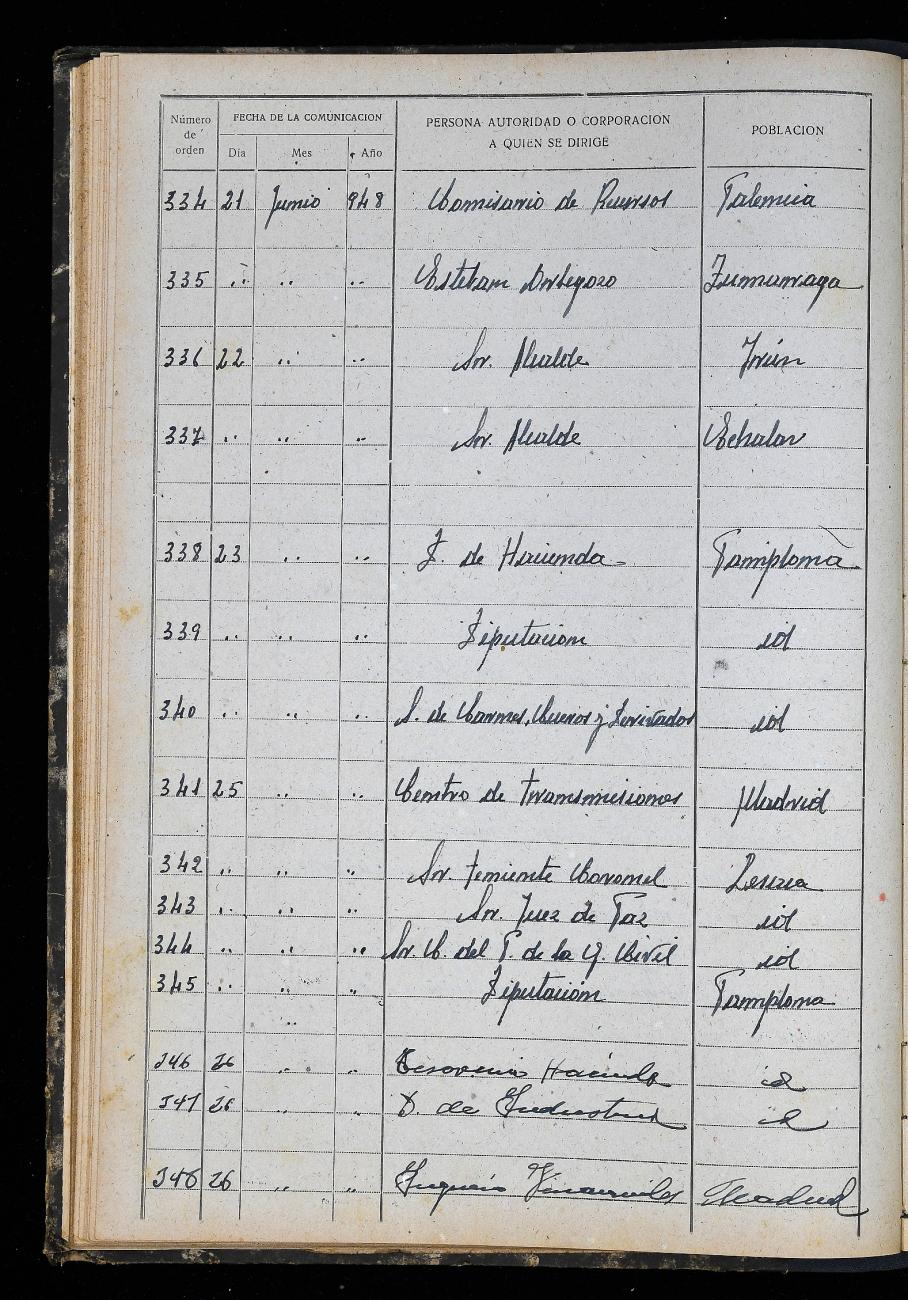 Número de orden FECHA DE LA COMUNICACION PERSONA AUTORIDAD O CORPORACION A QUIEN SE DIRIGE POBLACION
Día Mes Año
334 21 Junio 948 Comisario de Recursos Palencia
335 .. .. .. Esteban Ortegozo Zumarraga
336 22 .. .. Sr. Alcalde Irún
337 .. .. .. Sr. Alcalde Echalar
338 23 .. .. D. de Hacienda Pamplona
339 .. .. .. Diputación id
340 .. .. .. S. de Carnes, Cueros y Derivados id
341 25 .. .. Centro de transmisiones Madrid
342 .. .. .. Sr. Teniente Coronel Lesaca
343 .. .. .. Sr. Juez de Paz id
344 .. .. .. Sr. C. del P. de la G. Civil id
345 .. .. .. Diputación Pamplona
..
346 26 .. .. Tesoreria Hacienda id
347 26 .. .. D. de Industria id
348 26 .. .. Madrid